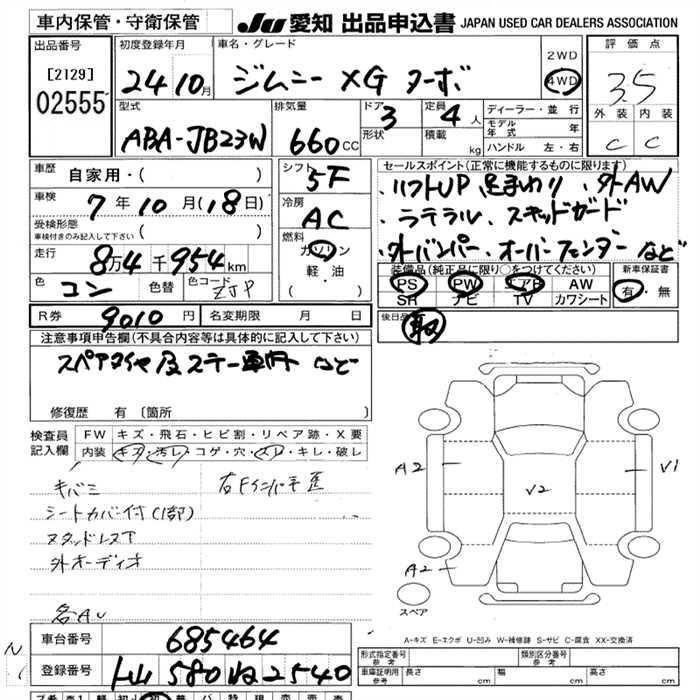 車内保管・守衛保管 JU 愛知 出品申込書 JAPAN USED CAR DEALERS ASSOCIATION
出品番号 初度登録年月 車名・グレード 2WD 評価点
[2129] 24 10月 ジムニー XG ターボ 4WD 3.5
02555 型式 排気量 ドア 3 定員 4人 ディーラー・並行 外装 内装
ABA-JB23W 660CC 形状 積載 kg モデル年式 年 C C
ハンドル 左・右
車歴 自家用・( ) シフト 5F セールスポイント(正常に機能するものに限ります)
車検 7年10月(18日) 冷房 AC ・リフトUP 足まわり ・外AW
受検形態 車検付きのみ記入して下さい ( ) 燃料 ・ラテラル ・スキッドガード
走行 8万4千954km ガソリン 軽・油 ・( ) ・外バンパー ・オーバーフェンダー など
色 コン 色替 色コード ZJP 装備品(純正品に限り○をつけてください) 新車保証書
PS PW エアB AW 有・無
SR ナビ TV カワシート
R券 9010円 名変期限 月 日 後日品
注意事項申告欄(不具合内容等は具体的に記入して下さい)
スペアタイヤ及ステー車内 など
修復歴 有 〔箇所
検査員記入欄 FW キズ・飛石・ヒビ割・リペア跡・X要
内装 キズ・汚レ・コゲ・穴・スレ・キレ・破レ
キバミ
シートカバー付(1部)
スタッドレス下
外オーディオ
A2 V2 V1
A2
スペア
A-キズ E-エクボ U-凹み W-補修跡 S-サビ C-腐食 XX-交換済
車台番号 685464
登録番号 580 2540
形式指定番号 参考 類別区分番号 参考
車庫証明用 参考 長さ cm 幅 cm 高さ cm